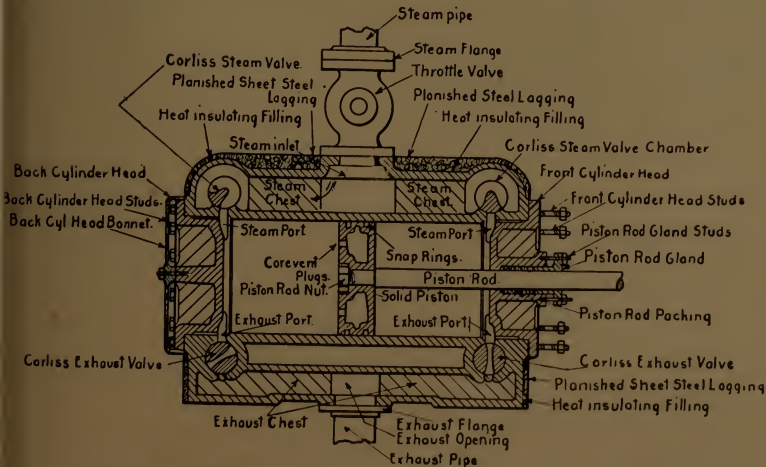 Steam pipe
Steam Flange
Corliss Steam Valve.
Throttle Valve
Planished Sheet Steel
Lagging
Planished Steel Lagging
Heat insulating Filling
Heat insulating Filling
Steam inlet
Corliss Steam Valve Chamber
Back Cylinder Head
Front Cylinder Head
Steam
Chest
Steam
Chest.
Back Cylinder Head Studs.
Front Cylinder Head Studs
Back Cyl Head Bonnet.
Steam Port
Steam Port
Snap Rings.
Piston Rod Gland Studs
Corevent
Plugs.
Piston Rod Gland
Piston Rod
Piston Rod Nut.
Solid Piston
Piston Rod Packing
Exhaust Port.
Exhaust Port
Corliss Exhaust Valve
Corliss Exhaust Valve
Planished Sheet Steel Lagging
Heat insulating Filling
Exhaust Chest
Exhaust Flange
Exhaust Opening
Exhaust Pipe